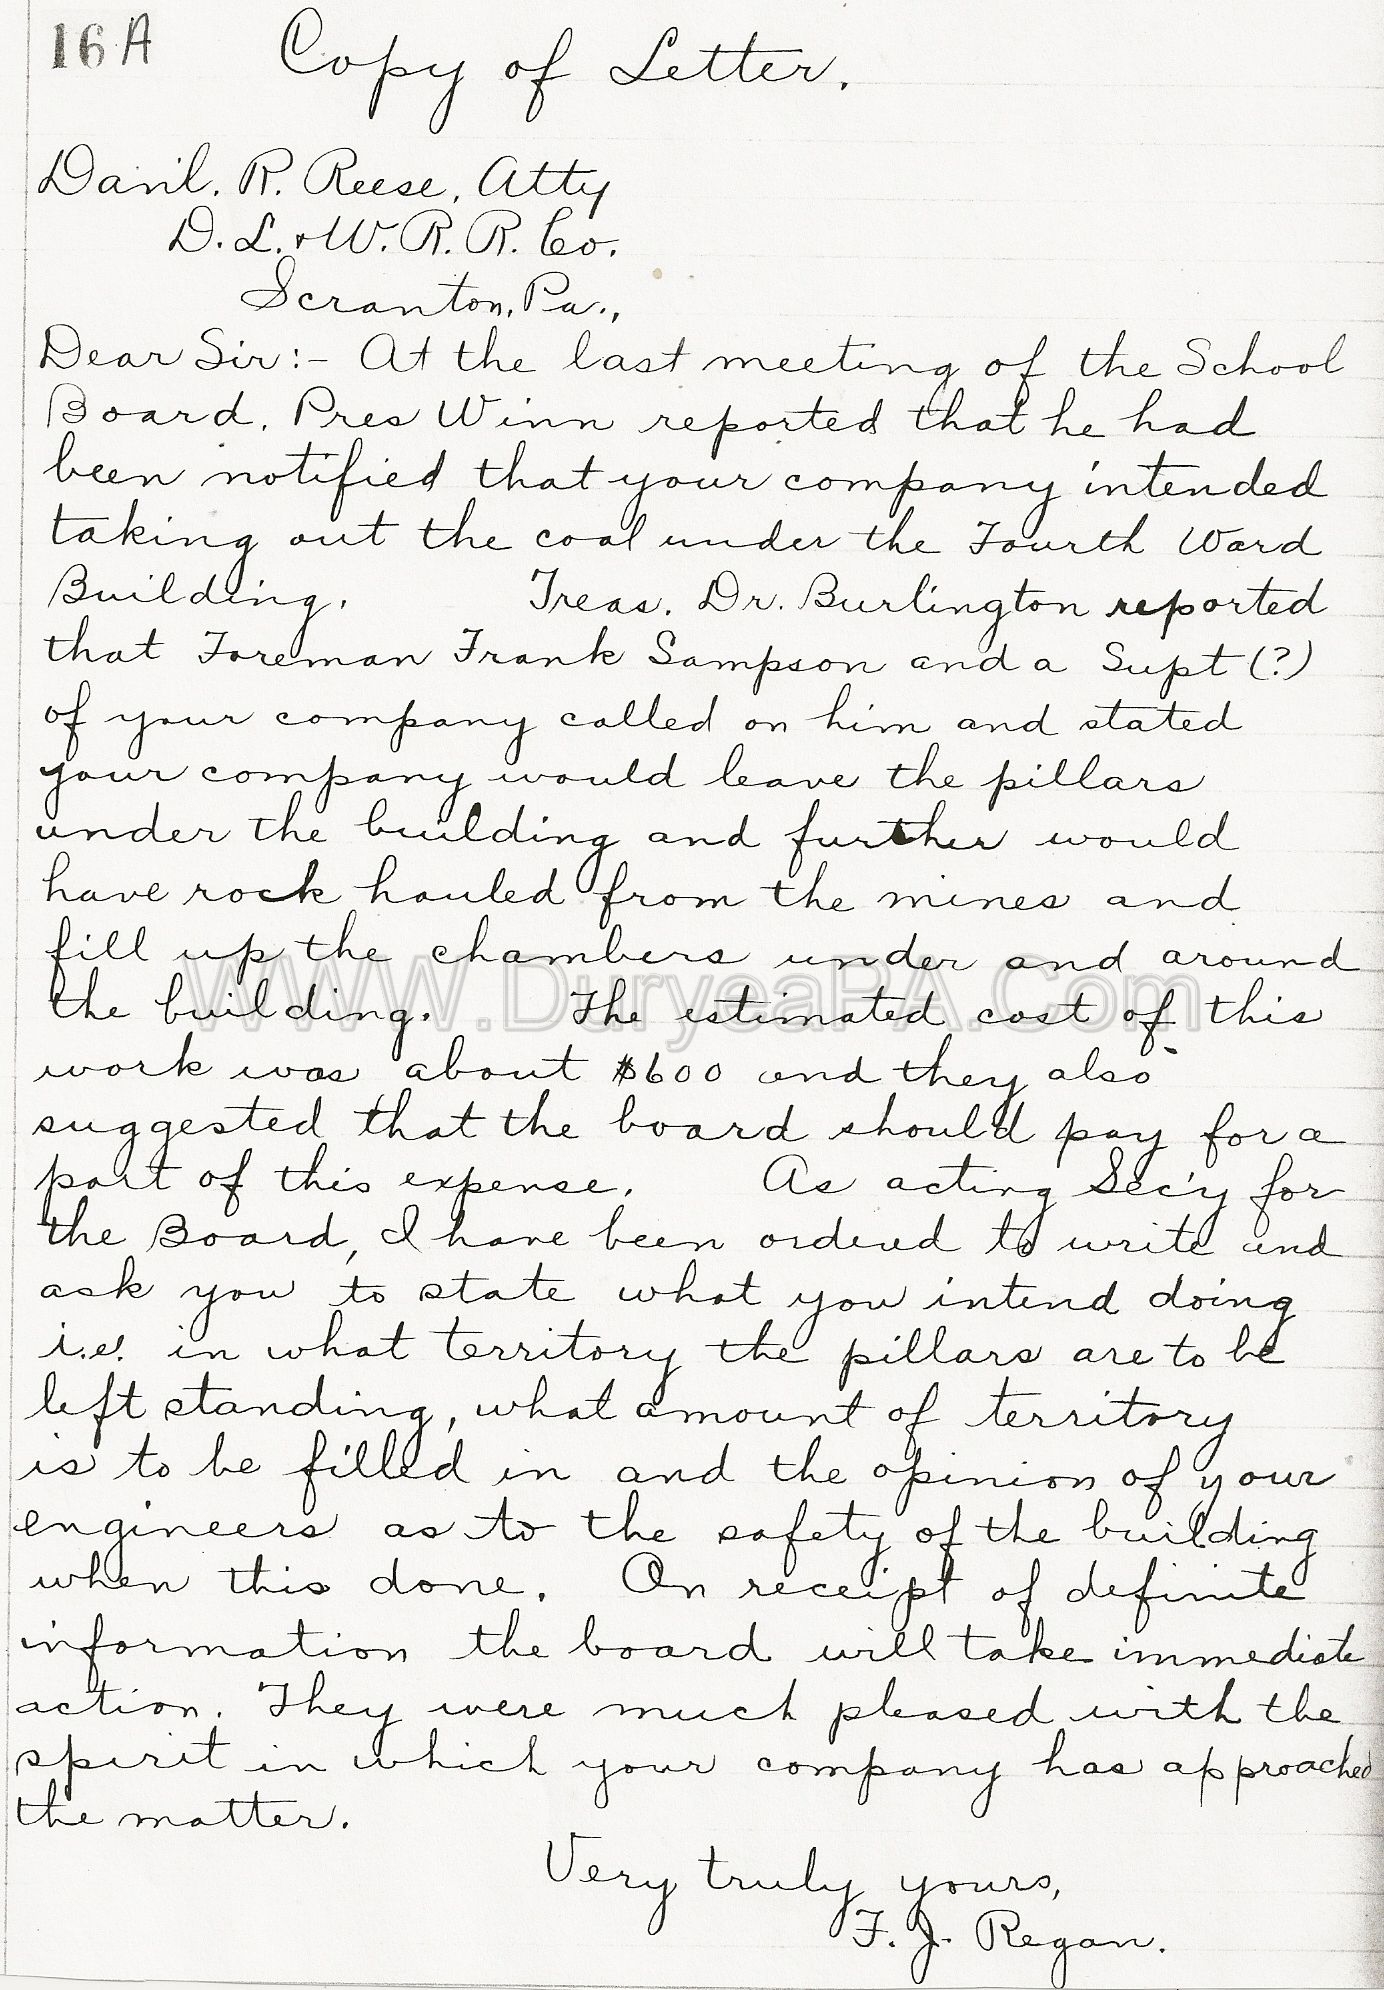 16A Copy of Letter.
Danil. R. Reese, Atty
D. L. & W. R. R. Co.
Scranton, Pa.,
Dear Sir:- At the last meeting of the School
Board, Pres Winn reported that he had
been notified that your company intended
taking out the coal under the Fourth Ward
Building. Treas. Dr. Burlington reported
that Foreman Frank Sampson and a Supt (?)
of your company called on him and stated
your company would leave the pillars
under the building and further would
have rock hauled from the mines and
fill up the chambers under and around
the building. The estimated cost of this
WWW.DuryeaPA.Com
work was about $600 and they also
suggested that the board should pay for a
part of this expense. As acting Sec'y for
the Board, I have been ordered to write and
ask you to state what you intend doing
i.e. in what territory the pillars are to be
left standing, what amount of territory
is to be filled in and the opinion of your
engineers as to the safety of the building
when this done. On receipt of definite
information the board will take immediate
action. They were much pleased with the
spirit in which your company has approached
the matter.
Very truly yours,
F. J. Regan.